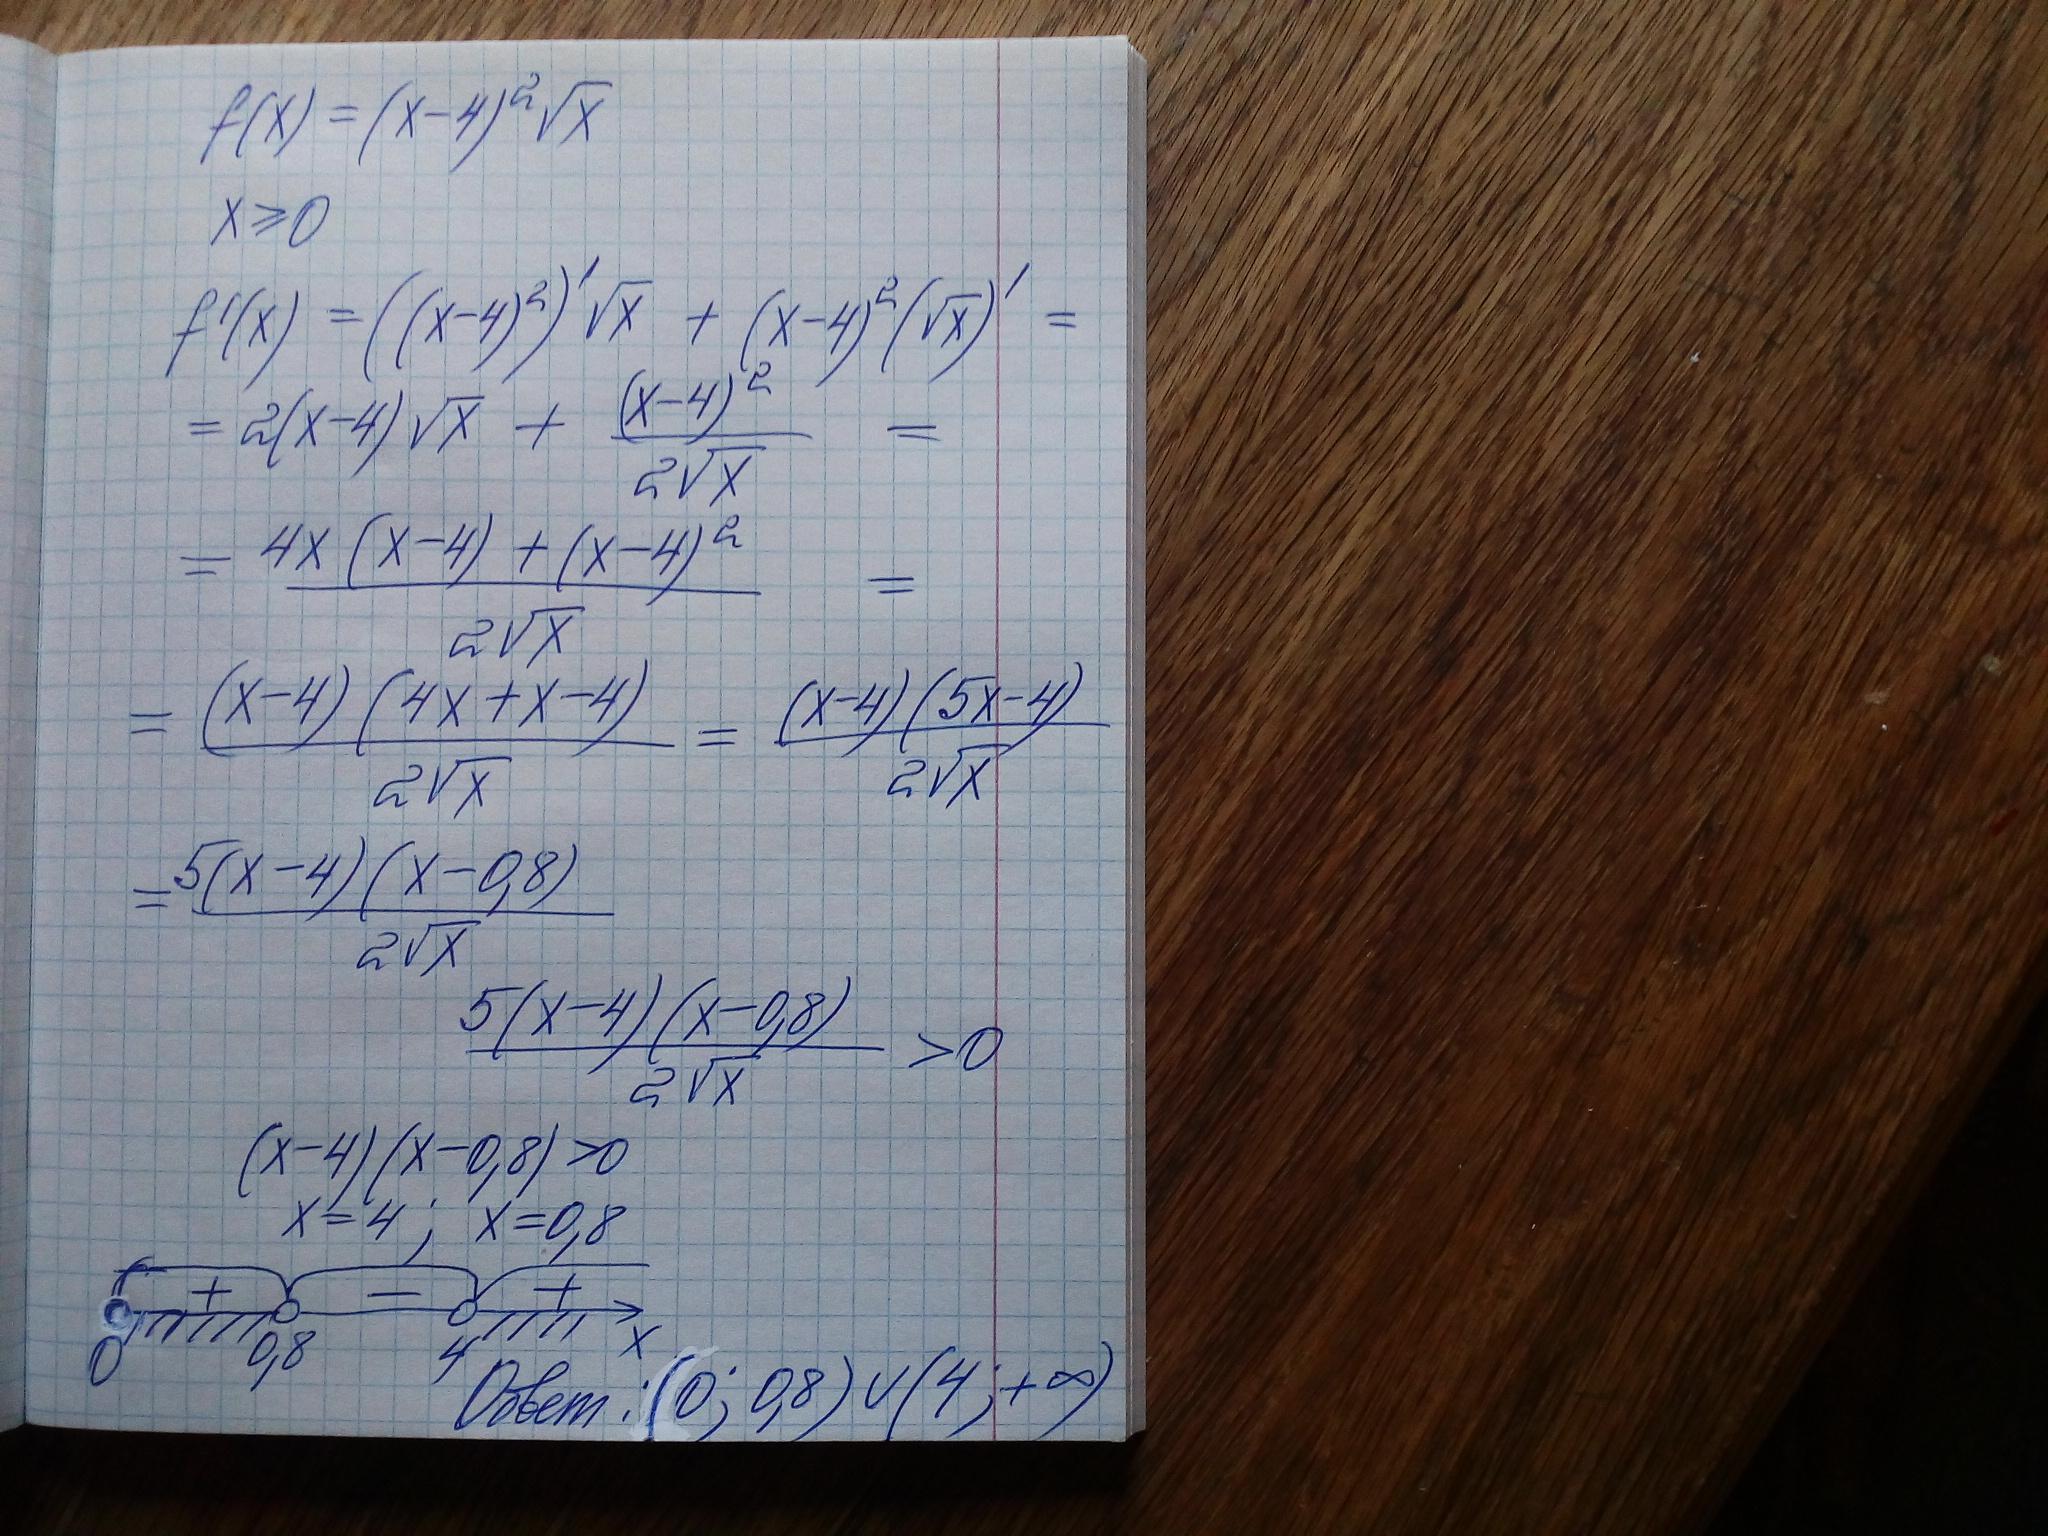 f(x) = (x-4)²√x
x ⩾ 0
f'(x) = ((x-4)²)'√x + (x-4)²(√x)' =
= 2(x-4)√x + (x-4)²/2√x =
= 4x(x-4)+(x-4)²/2√x =
= (x-4)(4x+x-4)/2√x = (x-4)(5x-4)/2√x
= 5(x-4)(x-0,8)/2√x
5(x-4)(x-0,8)/2√x >0
(x-4)(x-0,8)>0
x=4; x=0,8
+ − +
0 0,8 4 x
Ответ: (0; 0,8)∪(4; +∞)